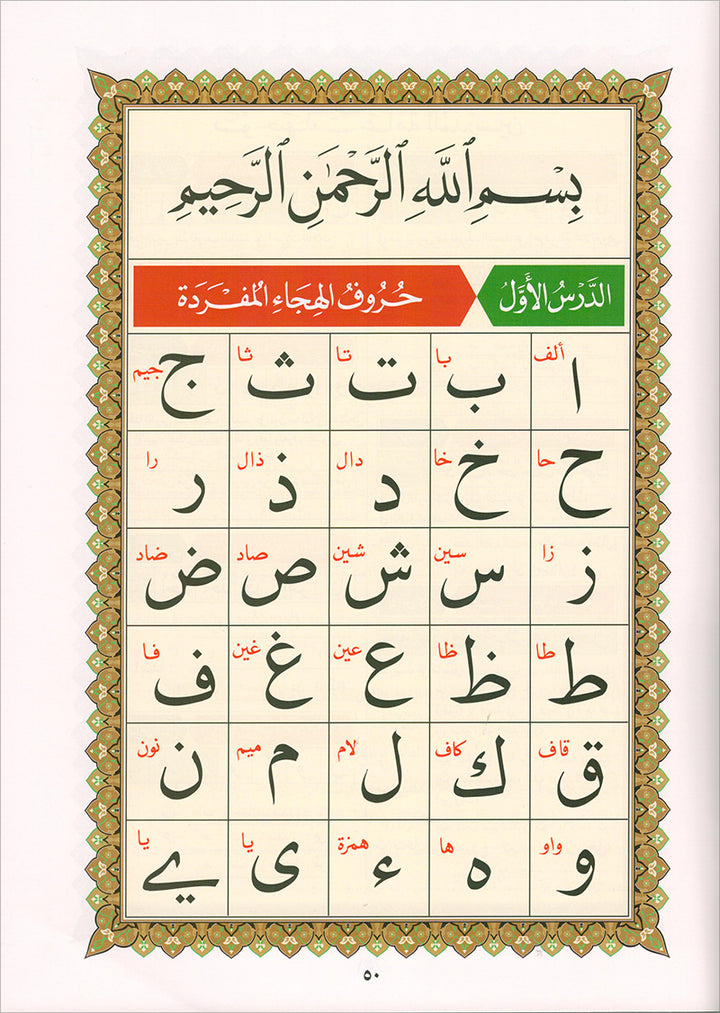 بِسْمِ ٱللَّهِ ٱلرَّحْمَٰنِ ٱلرَّحِيمِ
الدَّرْسُ الأَوَّلُ حُرُوفُ الهِجَاءِ المُفْرَدَة
ا ألف ب با ت تا ث ثا ج جيم
ح حا خ خا د دال ذ ذال ر را
ز زا س سين ش شين ص صاد ض ضاد
ط طا ظ ظا ع عين غ غين ف فا
ق قاف ك كاف ل لام م ميم ن نون
و واو ه ها ء همزة ى يا ے يا
٥٠